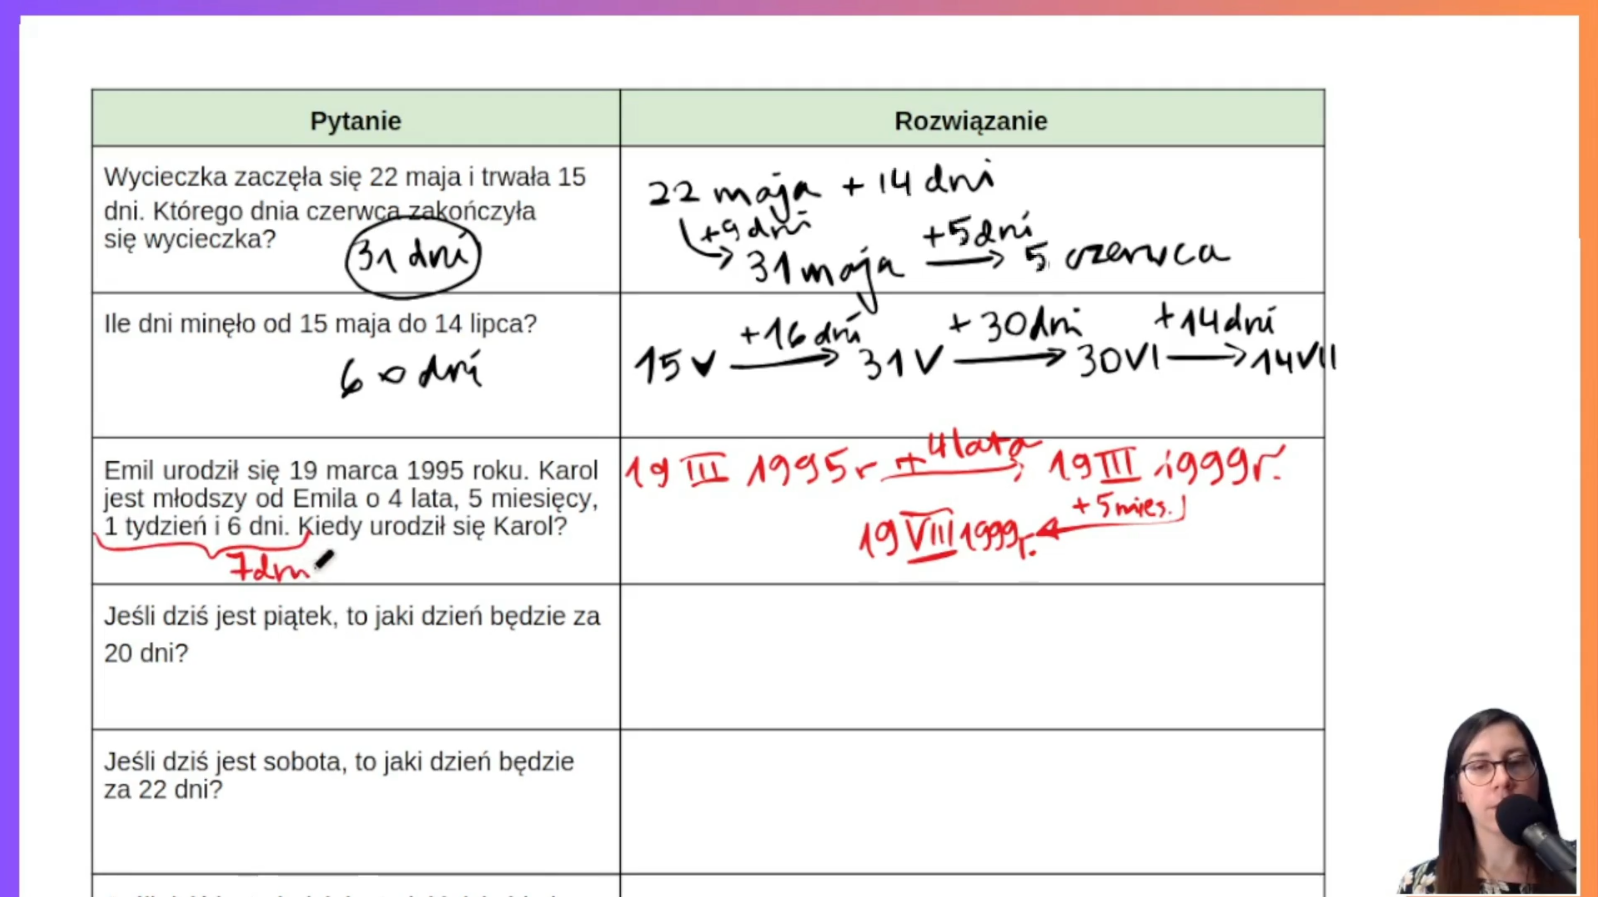 Pytanie
Rozwiązanie
Wycieczka zaczęła się 22 maja i trwała 15
dni. Którego dnia czerwca zakończyła
się wycieczka?
31 dni
22 maja + 14 dni
+9 dni
31 maja
+5 dni
5 czerwca
Ile dni minęło od 15 maja do 14 lipca?
60 dni
+16 dni
+ 30 dni
+14 dni
15 V
31 V
30 VI
14 VII
Emil urodził się 19 marca 1995 roku. Karol
jest młodszy od Emila o 4 lata, 5 miesięcy,
1 tydzień i 6 dni. Kiedy urodził się Karol?
7 dni
19 III 1995 r
+ 4 lata
19 III 1999 r.
+ 5 mies.
19 VIII 1999 r.
Jeśli dziś jest piątek, to jaki dzień będzie za
20 dni?
Jeśli dziś jest sobota, to jaki dzień będzie
za 22 dni?